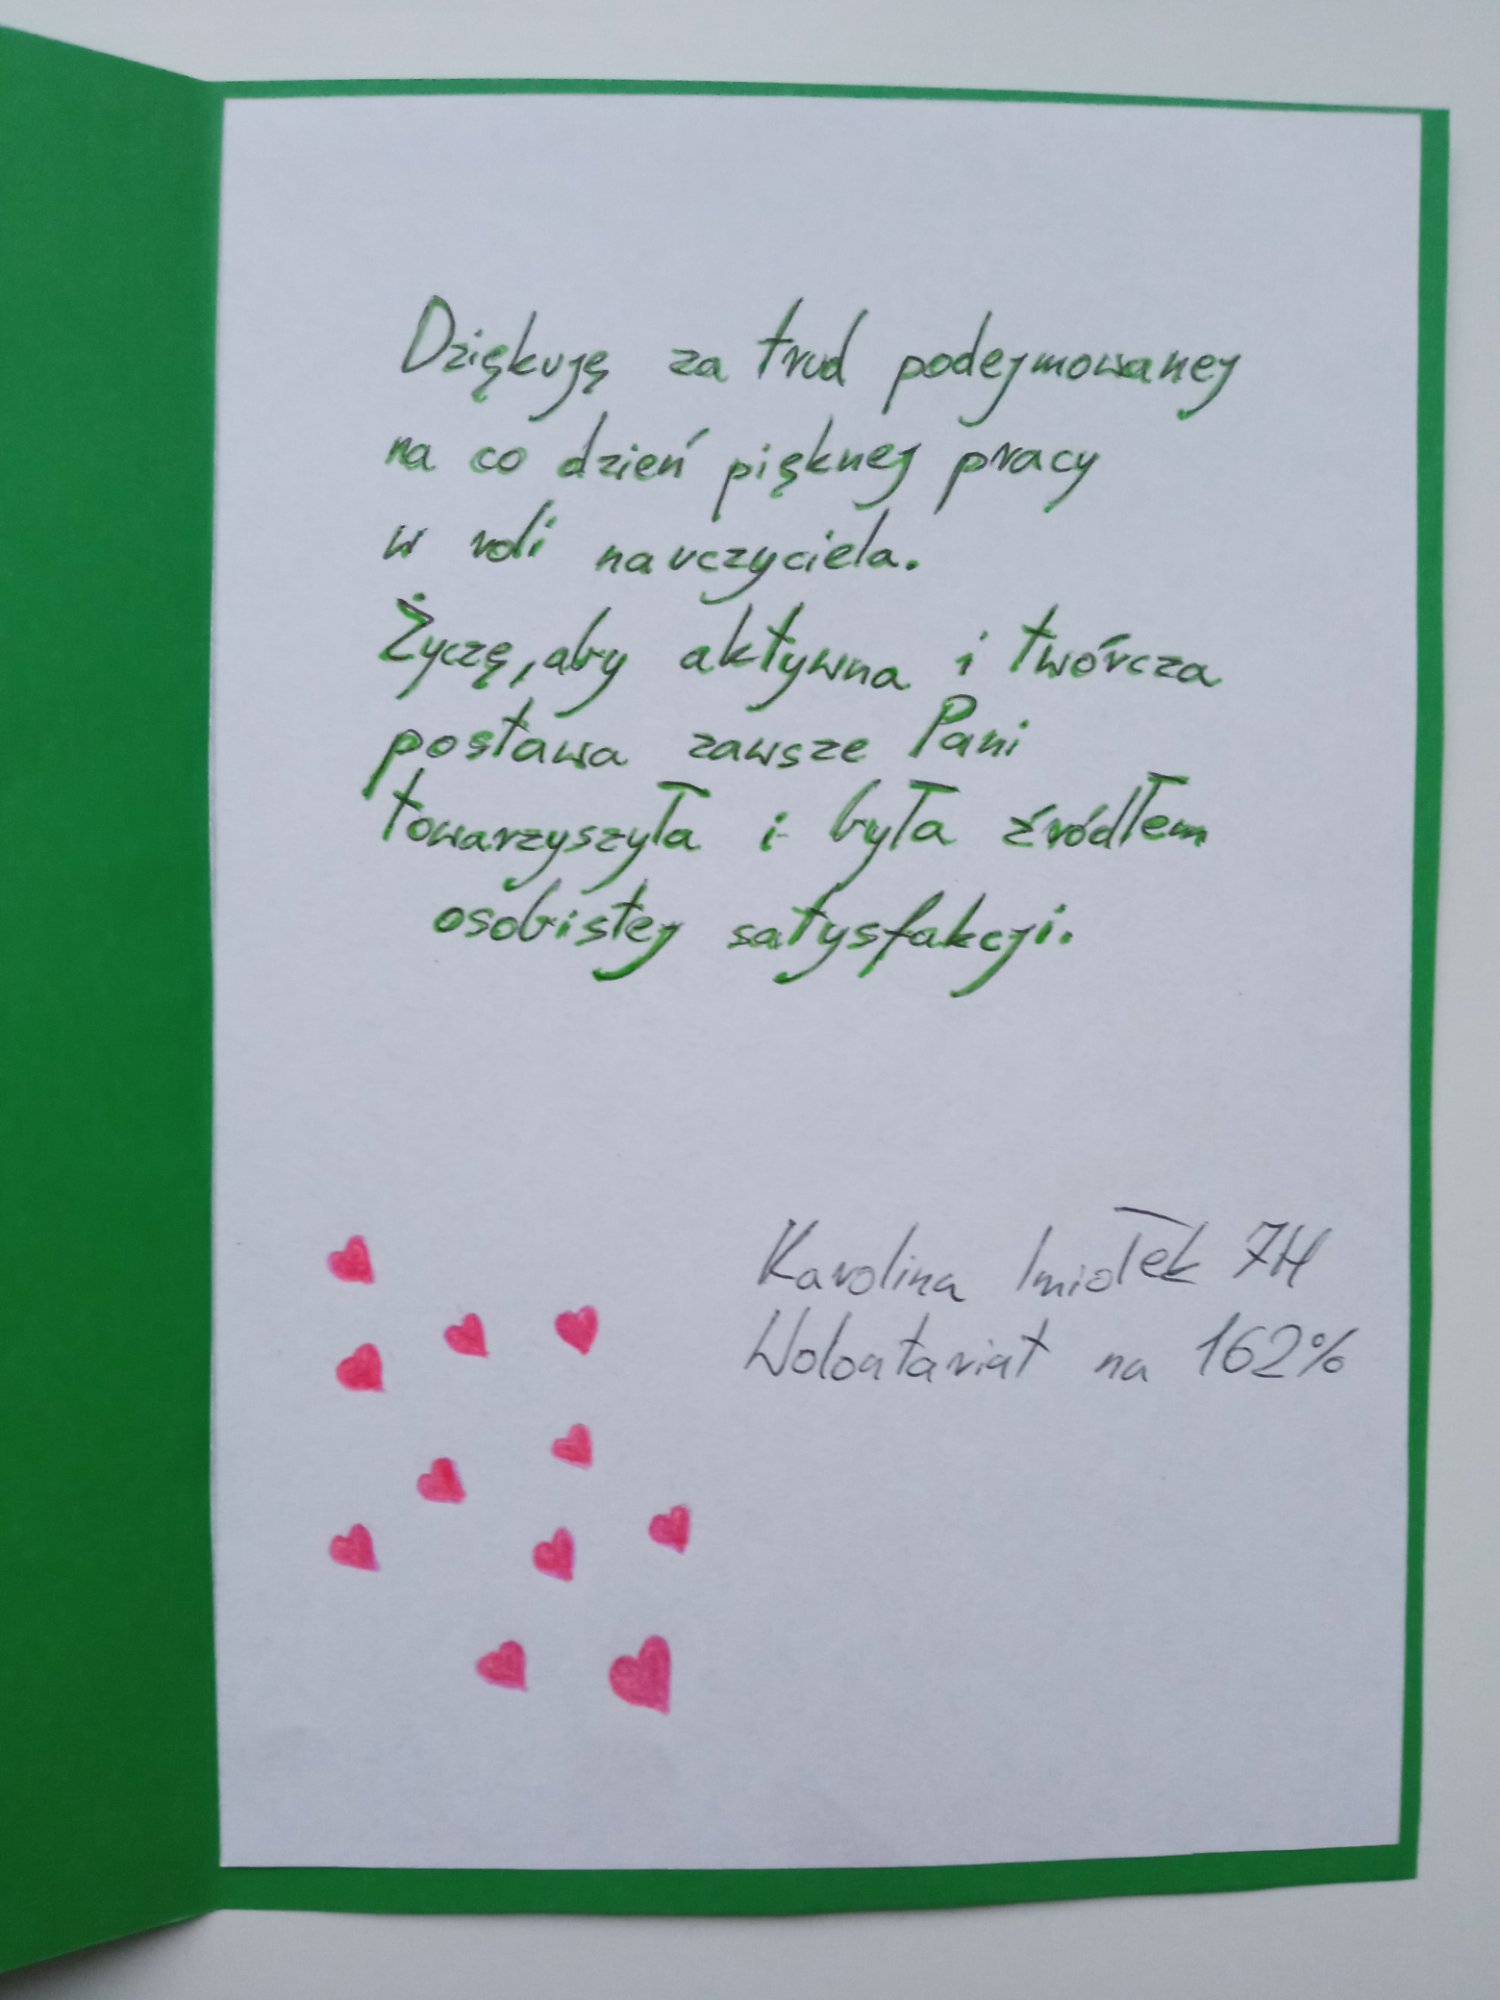 Dziękuję za trud podejmowanej
na co dzień pięknej pracy
w roli nauczyciela.
Życzę, aby aktywna i twórcza
postawa zawsze Pani
towarzyszyła i była źródłem
osobistej satysfakcji.
Karolina Imiołek 7H
Wolontariat na 162%